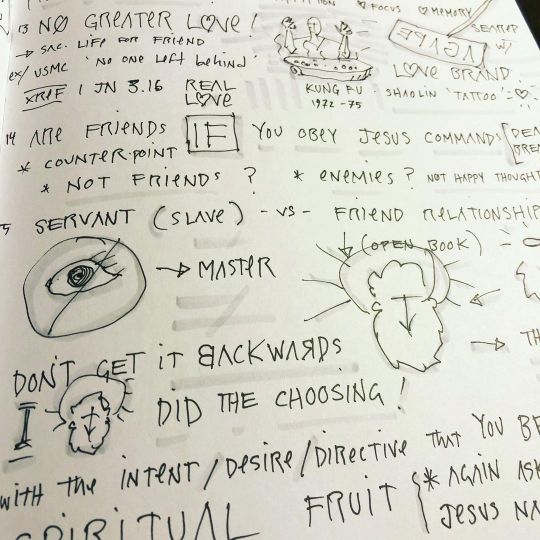 ♡ FOCUS ♡ MEMORY
13 NO GREATER LOVE!
SEARED
W/
AGAPE
→ SAC. LIFE FOR FRIEND
LOVE BRAND
ex/ USMC 'NO ONE LEFT BEHIND'
XREF 1 JN 3.16 REAL
LOVE
KUNG FU
1972-75
SHAOLIN 'TATTOO'
14 ARE FRIENDS IF YOU OBEY JESUS COMMANDS
* COUNTER·POINT
* NOT FRIENDS? * ENEMIES? NOT HAPPY THOUGHT
SERVANT (SLAVE) - VS - FRIEND RELATIONSHIP
(OPEN BOOK)
→ MASTER
DON'T GET IT BACKWARDS
I DID THE CHOOSING!
WITH THE INTENT/DESIRE/DIRECTIVE THAT YOU
SPIRITUAL FRUIT
* AGAIN
JESUS